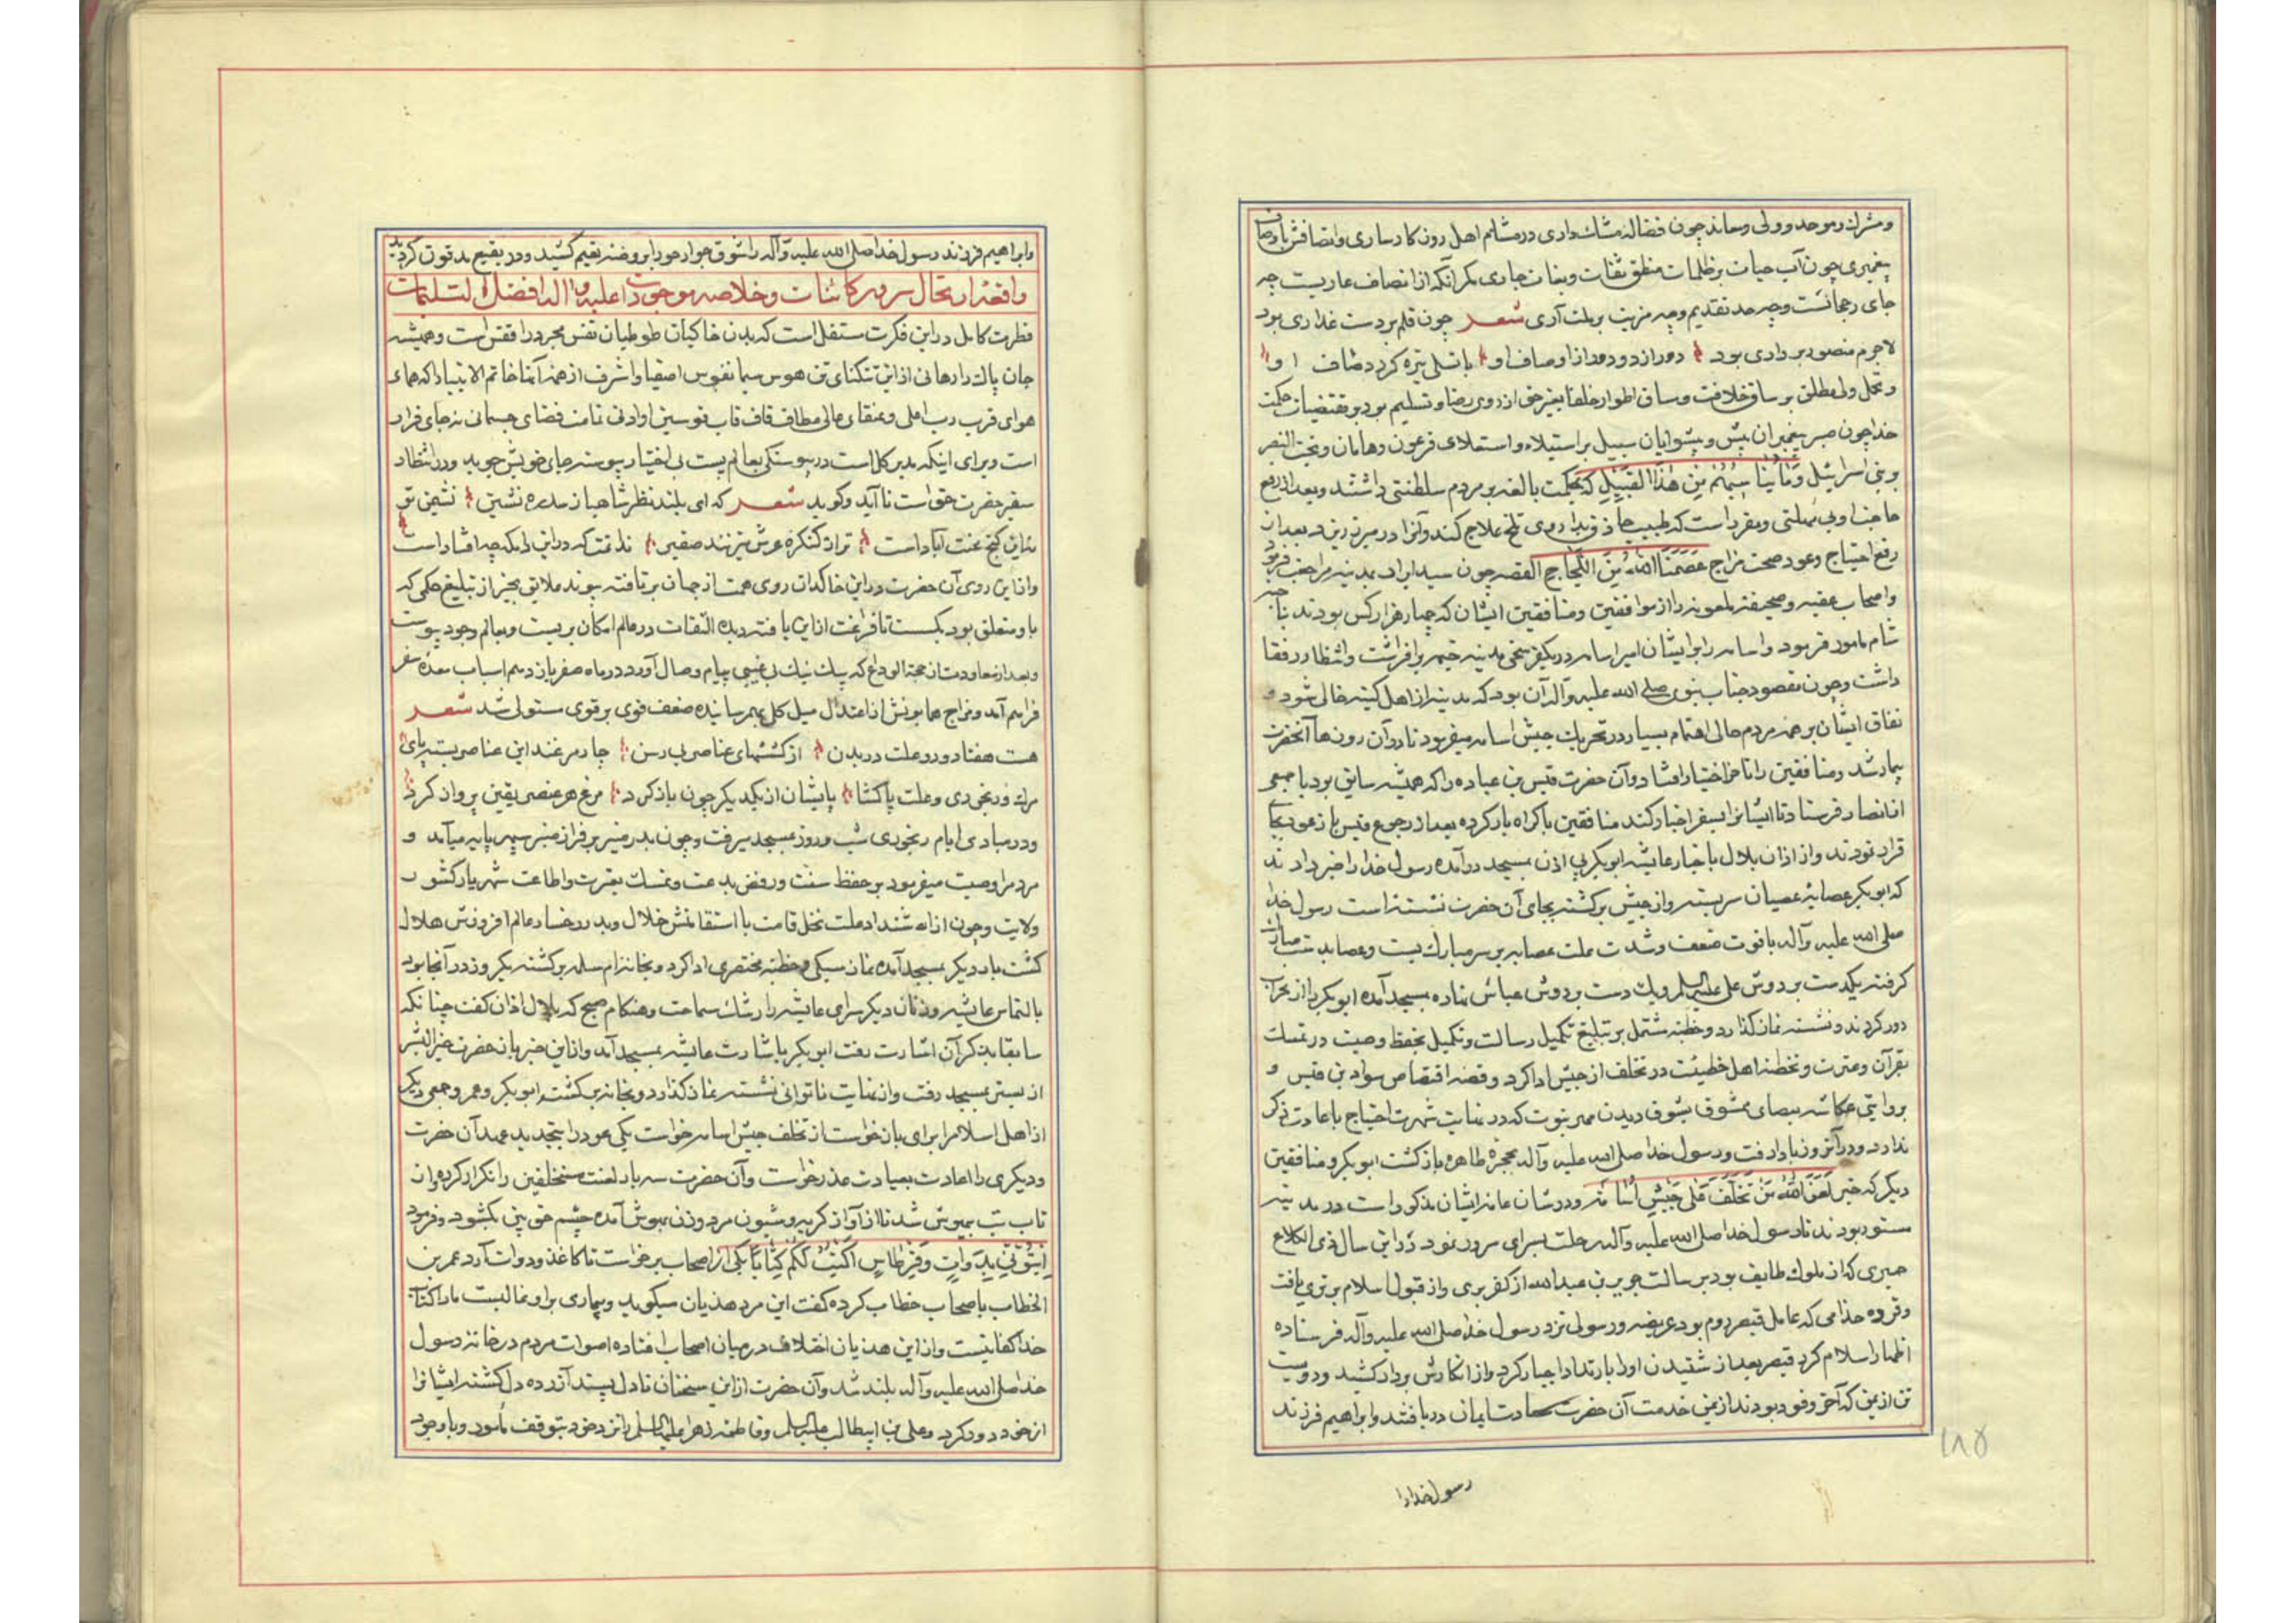 ومشرك وموحد وولی ومعاند چون فضاله مشك داری در مشام اهل روزکار ساری واتصافش باوصاف
پیغمبری چون آب حیات بر ظلمات منطق ثقات وبنات جاری مکر آنکه از انصاف عاریست چه
جای رجحانست وچه حد تقدیم وچه مزیت بر ملت آری شعر چون قلم بر دست غداری بود
لاجرم منصور بر داری بود دور از دو دور از اوصاف او با تسلی تیره کردد صاف او
وتحمل ولی مطلق بر ساق خلافت وساق اطوار خلفا بغیر حق از روی رضا وتسلیم بود بر مقتضیات حکمت
خدا چون صبر پیغمبران پیش و پیشوایان سبیل بر استیلاء واستعلای فرعون وهامان وبخت النصر
وبنی اسرائیل که بحکمت بالغه بر مردم سلطنتی داشتند وبعد از رفع
حاجت اولی مهلتی ومقرر است که طبیب حاذق بداروی تلخ علاج کند وآنرا در میریزند بعد از
رفع احتیاج وعود صحت مزاج القصه چون سید ابرار بمدینه مراجعت فرمود
واصحاب عقبه وصحیفه ملعونه را از موافقین ومنافقین ایشان که چهار هزار کس بودند بناحیه
شام مامور فرمود واسامه را بر ایشان امیر اسامه در یکفرسخی مدینه خیمه برافراشت وانتظار رفقا
داشت وچون مقصود جناب نبوی صلی الله علیه وآله آن بود که مدینه از اهل کینه خالی شود و
نفاق ایشان بر همه مردم حالی اهتمام بسیار در تحریك جیش اسامه میفرمود تا در آن روزها آنحضرت
بیمار شد ومنافقین را تاخر اختیار افتاد وآن حضرت قیس بن عباده را که همیشه سایق بود با جمعی
از انصار فرستاد تا ایشانرا بسفر اجبار کند منافقین باکراه بار کرده بعد از رجوع قیس باز عود بجا
قرار نمودند واز اذان بلال باخبار عایشه ابوبکر بی اذن بمسجد درآمده رسول خدا را خبر دادند
که ابوبکر عصابه عصیان سر بسته واز جیش برکشته بجای آن حضرت نشسته است رسول خدا
صلی الله علیه وآله با قوت ضعف وشدت علت عصابه بر سر مبارك بست وعصا بدست مبارك
کرفته یکدست بر دوش علی علیه السلم ویك دست بر دوش عباس نهاده بمسجد آمده ابوبکر را از محراب
دور کردند ونشسته نماز کذارد وخطبه مشتمل بر تبلیغ تکمیل رسالت وتکمیل بحفظ وصیت در تمسك
بقرآن وعترت وتخطئه اهل خطیئت در تخلف از جیش ادا کرد وقصه اقتصاص سواد بن قیس و
بروایتی عکاشه بعصای ممشوق بشوق دیدن مهر نبوت که در غایت شهرت احتیاج باعادت ذکر
ندارد ودر آنروز باد رفت ورسول خدا صلی الله علیه وآله بحجره طاهره بازکشت ابوبکر ومنافقین
دیکر که خبر لَعَنَ اللهُ مَنْ تَخَلَّفَ عَنْ جَیْشِ اُسَامَه در شان عامه ایشان مذکور است در مدینه
مستور بودند تا رسول خدا صلی الله علیه وآله رحلت بسرای سرور نمود در این سال ذی الکلاع
حمیری که از ملوك طایف بود برسالت جریر بن عبدالله از کفر بری واز قبول اسلام برتری یافت
وفروه جذامی که عامل قیصر روم بود عریضه ورسولی نزد رسول خدا صلی الله علیه وآله فرستاده
اظهار اسلام کرد قیصر بعد از شنیدن او را بارتداد اجبار کرد واز انکارش بردار کشید ودویست
تن از یمن که آخر وفود بودند از یمن خدمت آن حضرت سعادت ایمان دریافتند وابراهیم فرزند
رسول خدا را
۱۸۵
وابراهیم فرزند رسول خدا صلی الله علیه وآله را شوق جوار حور ابروضه نعیم کشید ودر بقیع مدفون کردید
واقعه ارتحال سرور کائنات وخلاصه موجودات علیه وآله افضل التسلیمات
فطرت کامل در این فکرت مستقل است که بدن خاکیان طوطیان نفس مجرد را قفس است وهمیشه
جان پاك را رهائی از این تنکنای تن هوس سیما نفوس اصفیا واشرف از همه آنها خاتم الانبیا را که همای
هوای قرب رب اعلی وعنقای عالی مطاف قاف قاب قوسین او ادنی تمامت فضای جسمانی نه جای قرار
است وبرای اینکه مدبر کل است در پیوستکی بعالم پست بی اختیار پیوسته جای خویش جوید ودر انتظار
سفیر حضرت حق است تا آید وکوید شعر که ای بلند نظر شاهباز سدره نشین نشیمن تو
نه این کنج محنت آباد است ترا ز کنکره عرش میزنند صفیر ندانمت که در این دامکه چه افتاد است
واز این روی آن حضرت در این خاکدان روی همت از جهان برتافته پیوند علایق بجز از تبلیغ حکمی که
باو متعلق بود بکسست تا فراغت از این یافته دیده التفات در عالم امکان بربست وبعالم وجود پیوست
وبعد از معاودت از حجة الوداع که پیك نیك پی غیبی پیام وصال آورد در ماه صفر یازدهم اسباب معده سفر
فراهم آمد ومزاج همایونش از اعتدال میل کلی بهم رسانیده ضعف قوی بر قوی مستولی شد شعر
هست هفتاد ودو علت در بدن از کششهای عناصر بی رسن چار مرغند این عناصر بسته پای
مرك ورنجوری وعلت پاکشا پایشان از یکدیکر چون باز کرد مرغ هر عنصر یقین پرواز کرد
ودر مبادی ایام رنجوری شب وروز بمسجد میرفت وچون بدر منیر بر فراز منبر سپهر پایه میآمد و
مردم را وصیت میفرمود بر حفظ سنت ورفض بدعت وتمسك بعترت واطاعت شهریار کشور
ولایت وچون از اشتداد علت نخل قامت با استقامتش خلال وبدر رخسار عالم افروزش هلال
کشت بار دیکر بمسجد آمده نماز سبکی وخطبه مختصری ادا کرد وبخانه ام سلمه برکشته یکروز در آنجا بود
بالتماس عایشه وزنان دیکر سرای عایشه را رشك سما ساخت وهنکام صبح که بلال اذان کفت چنانکه
سابقا بذکر آن اشارت رفت ابوبکر باشارت عایشه بمسجد آمد واز این خبر بان حضرت خیر البشر
از بستر بمسجد رفت واز غایت ناتوانی نشسته نماز کذارد وبخانه برکشت ابوبکر وعمر وجمعی دیکر
از اهل اسلام را برای باز خواست از تخلف جیش اسامه خواست یکی عود را بتجدید عهد آن حضرت
ودیکری را اعادت بعیادت عذر خواست وآن حضرت سه بار لعنت متخلفین را تکرار کرده واز
تاب تب بیهوش شد تا از آواز کریه وشیون مرد وزن بهوش آمده چشم حق بین بکشود وفرمود
اِیتُونِی بِدَوَاتٍ وَقِرْطَاسٍ اَکْتُبُ لَکُمْ کِتَاباً یکی از اصحاب برخواست تا کاغذ ودوات آرد عمر بن
الخطاب باصحاب خطاب کرده کفت این مرد هذیان میکوید وبیماری بر او غالبست ما را کتاب
خدا کفایتست واز این هذیان اختلاف در میان اصحاب افتاده اصوات مردم در خانه رسول
خدا صلی الله علیه وآله بلند شد وآن حضرت از این سخنان نادل پسند آزرده دل کشته ایشانرا
از خود دور کرد وعلی بن ابیطالب علیه السلم وفاطمه زهرا علیها السلم را نزد خود بتوقف مامور وباوجود